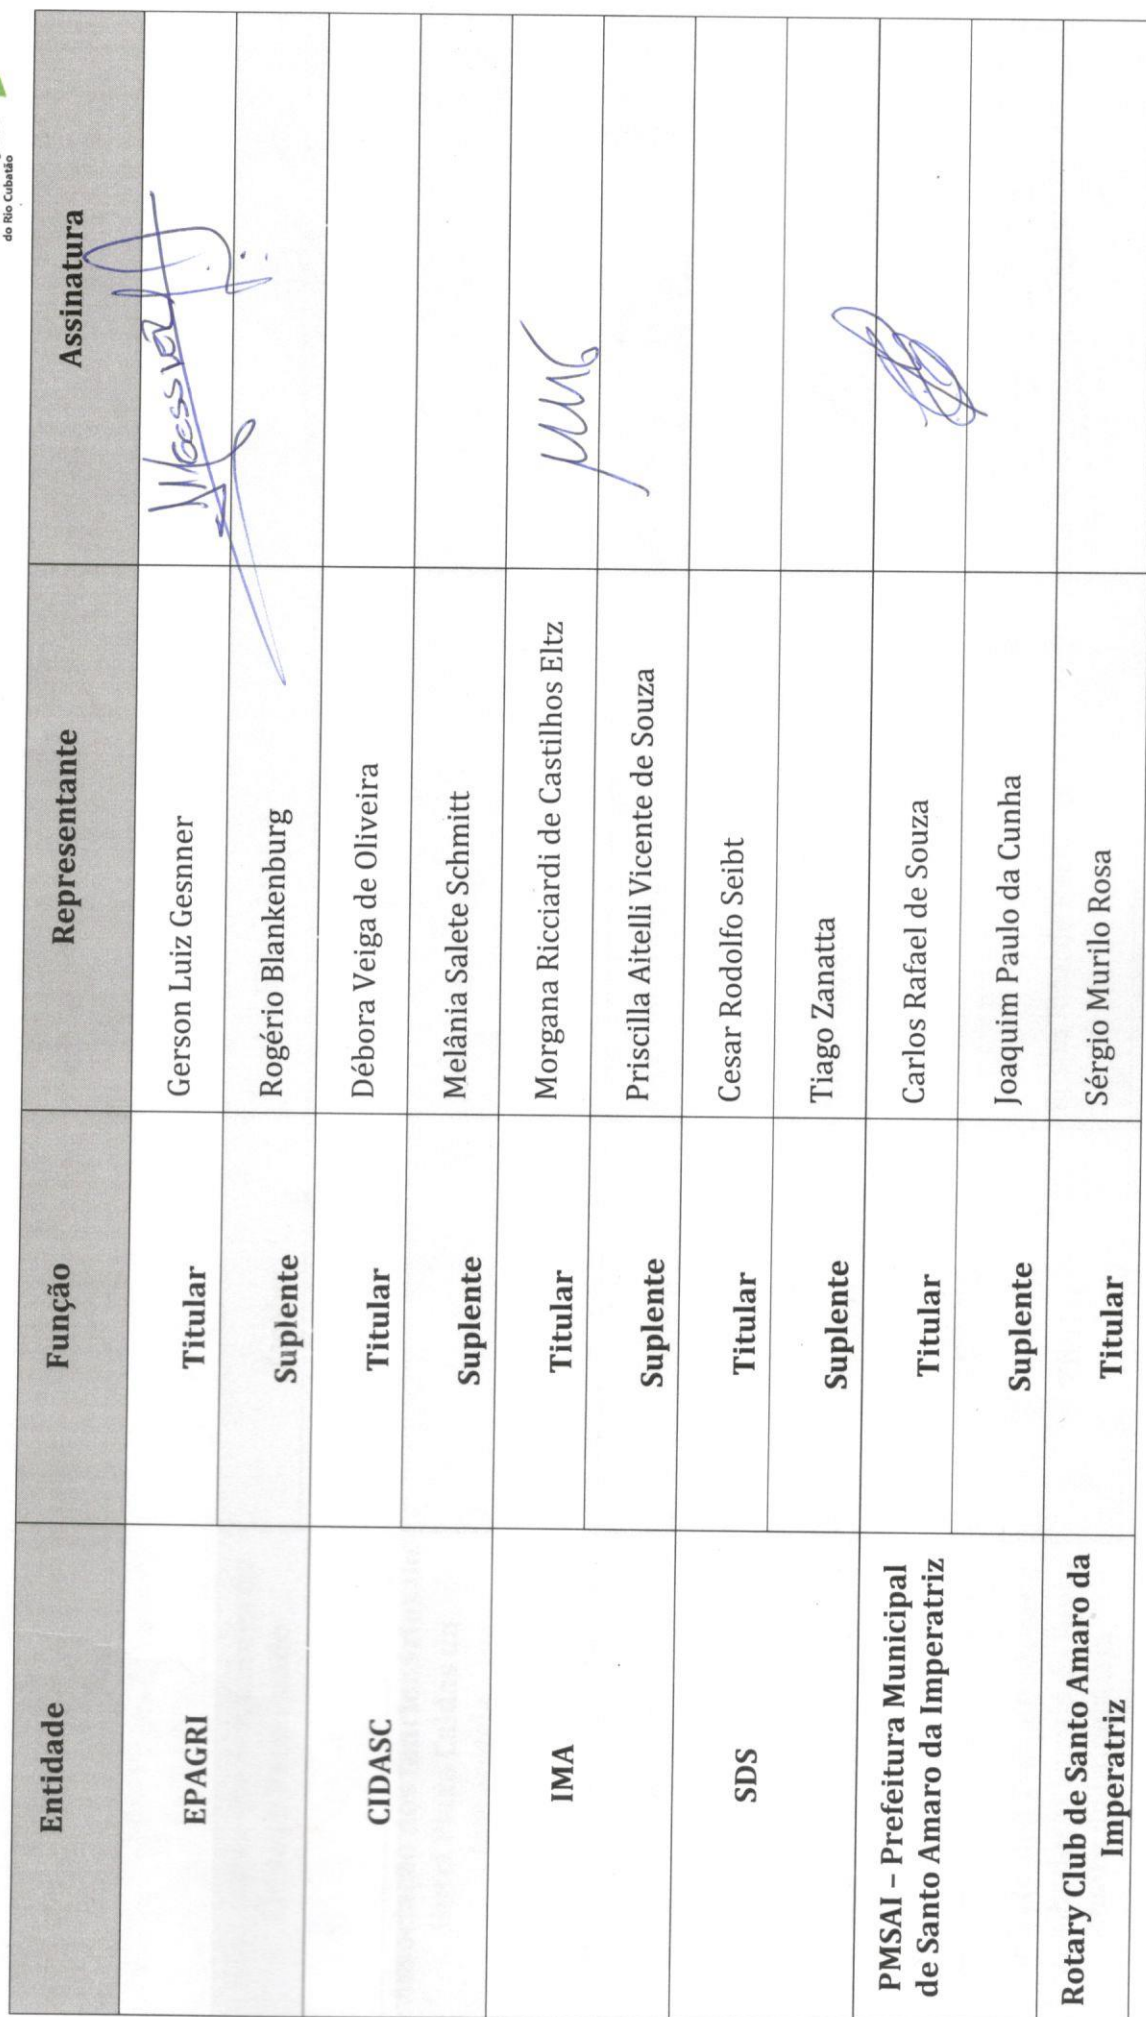 do Rio Cubatão
Entidade Função Representante Assinatura
EPAGRI Titular Gerson Luiz Gesnner
Suplente Rogério Blankenburg
CIDASC Titular Débora Veiga de Oliveira
Suplente Melânia Salete Schmitt
IMA Titular Morgana Ricciardi de Castilhos Eltz
Suplente Priscilla Aitelli Vicente de Souza
SDS Titular Cesar Rodolfo Seibt
Suplente Tiago Zanatta
PMSAI – Prefeitura Municipal
de Santo Amaro da Imperatriz
Titular Carlos Rafael de Souza
Suplente Joaquim Paulo da Cunha
Rotary Club de Santo Amaro da
Imperatriz
Titular Sérgio Murilo Rosa